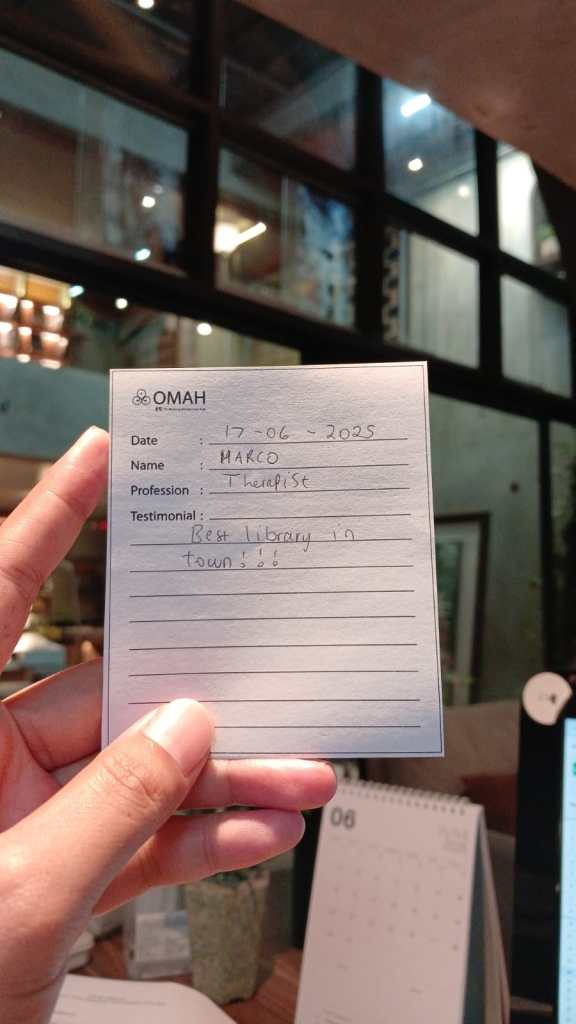 OMAH
Date : 17-06-2025
Name : MARCO
Profession : Therapist
Testimonial :
Best library in
town!!!
06